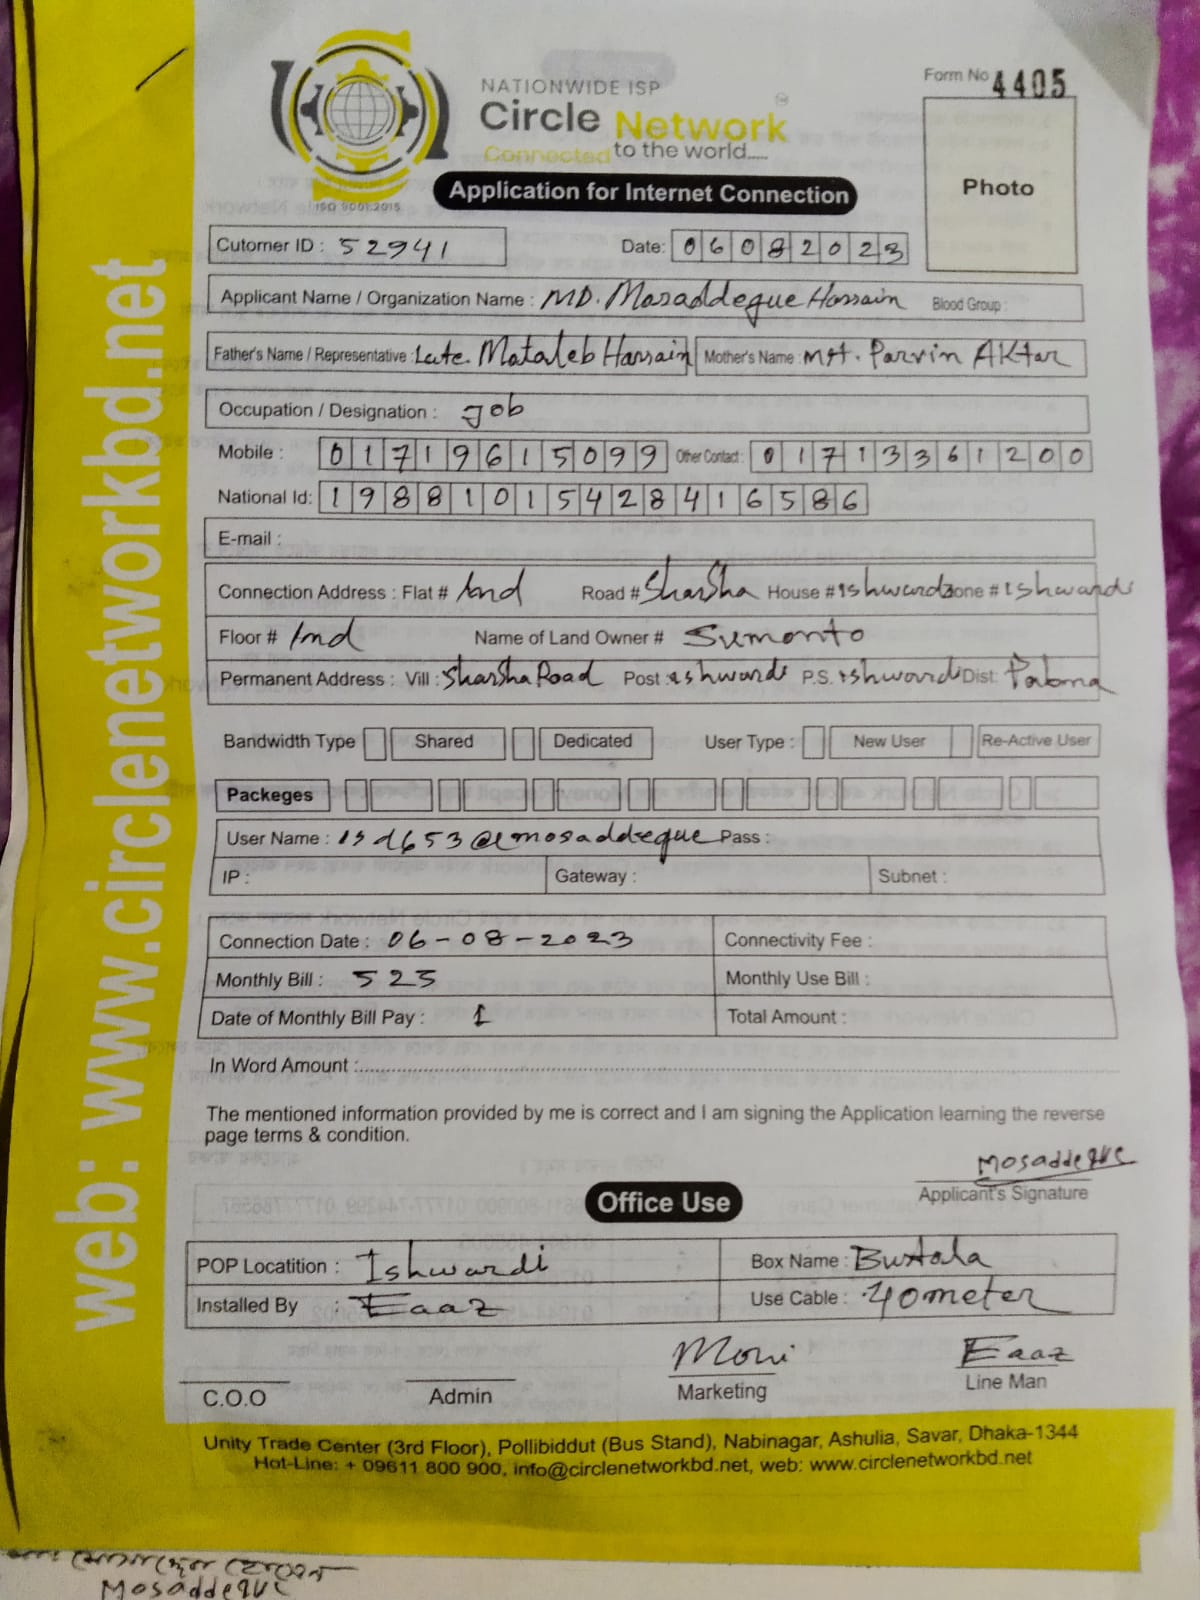 Form No 4405
NATIONWIDE ISP
Circle Network
Connected to the world.....
ISO 9001:2015
Application for Internet Connection
Photo
Cutomer ID : 52941 Date: 06082023
Applicant Name / Organization Name : MD. Mosaddeque Hossain Blood Group :
Father's Name / Representative : Late. Motaleb Hossain Mother's Name : Mst. Parvin Aktar
Occupation / Designation : Job
Mobile : 01719615099 Other Contact : 01713361200
National Id: 19881015428416586
E-mail :
Connection Address : Flat # Road # Sharsha House # Ishwardi Zone # Ishwardi
Floor # Name of Land Owner # Sumonto
Permanent Address : Vill : Sharsha Road Post : Ishwardi P.S. Ishwardi Dist: Pabna
Bandwidth Type Shared Dedicated User Type : New User Re-Active User
Packeges
User Name : isd653@mosaddeque Pass :
IP : Gateway : Subnet :
Connection Date : 06-08-2023 Connectivity Fee :
Monthly Bill : 525 Monthly Use Bill :
Date of Monthly Bill Pay : 1 Total Amount :
In Word Amount :
The mentioned information provided by me is correct and I am signing the Application learning the reverse
page terms & condition.
Mosaddeque
Applicant's Signature
Office Use
POP Locatition : Ishwardi Box Name : Bustala
Installed By : Eaaz Use Cable : 40 meter
Moni Eaaz
C.O.O Admin Marketing Line Man
Unity Trade Center (3rd Floor), Pollibiddut (Bus Stand), Nabinagar, Ashulia, Savar, Dhaka-1344
Hot-Line: + 09611 800 900, info@circlenetworkbd.net, web: www.circlenetworkbd.net
web: www.circlenetworkbd.net
Mosaddeque